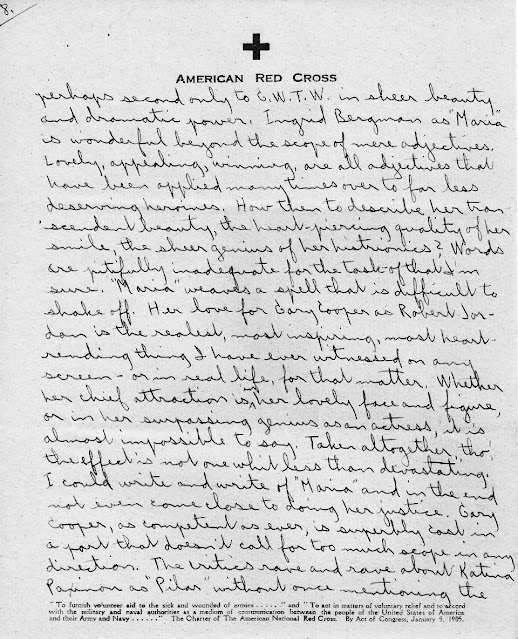 8.
AMERICAN RED CROSS
perhaps second only to G.W.T.W. in sheer beauty
and dramatic power. Ingrid Bergman as "Maria"
is wonderful beyond the scope of mere adjectives.
Lovely, appealing, winning, are all adjectives that
have been applied many times over to far less
deserving heroines. How then to describe her tran-
scendent beauty, the heart-piercing quality of her
smile, the sheer genius of her histrionics? Words
are pitifully inadequate for the task of that I'm
sure. "Maria" weaves a spell that is difficult to
shake off. Her love for Gary Cooper as Robert Jor-
dan is the realest, most inspiring, most heart-
rending thing I have ever witnessed on any
screen - or in real life, for that matter. Whether
her chief attraction is in her lovely face and figure,
or in her surpassing genius as an actress, it is
almost impossible to say. Taken altogether, tho'
the effect is not one whit less than devastating.
I could write and write of "Maria" and in the end
not even come close to doing her justice. Gary
Cooper, as competent as ever, is superbly cast in
a part that doesn't call for too much scope in any
direction. The critics rave and rave about Katina
Paxinou as "Pilar" without once mentioning the
"To furnish volunteer aid to the sick and wounded of armies . . . . . ." and "To act in matters of voluntary relief and to accord
with the military and naval authorities as a medium of communication between the people of the United States of America
and their Army and Navy . . . . . ." The Charter of The American National Red Cross. By Act of Congress, January 5, 1905.